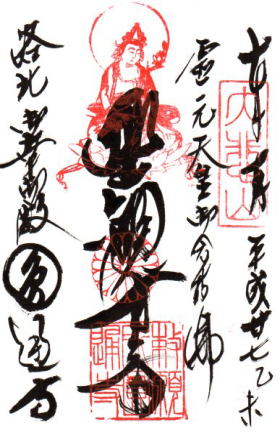 平成廿七乙未
大悲山
霊元天皇御念持佛
聖観世音
勅願
洛北
御殿
圓通寺